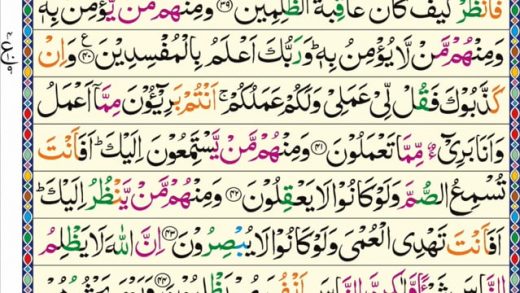 فَانْظُرْ كَيْفَ كَانَ عَاقِبَةُ الظّٰلِمِيْنَ ﴿۳۹﴾ وَمِنْهُمْ مَّنْ يُّؤْمِنُ بِهٖ
وَمِنْهُمْ مَّنْ لَّا يُؤْمِنُ بِهٖ ؕ وَرَبُّكَ اَعْلَمُ بِالْمُفْسِدِيْنَ ﴿۴۰﴾ ع وَاِنْ
كَذَّبُوْكَ فَقُلْ لِّيْ عَمَلِيْ وَلَكُمْ عَمَلُكُمْ ۚ اَنْتُمْ بَرِيْٓـُٔوْنَ مِمَّاۤ اَعْمَلُ
وَاَنَا بَرِيْٓءٌ مِّمَّا تَعْمَلُوْنَ ﴿۴۱﴾ وَمِنْهُمْ مَّنْ يَّسْتَمِعُوْنَ اِلَيْكَ ؕ اَفَاَنْتَ
تُسْمِعُ الصُّمَّ وَلَوْ كَانُوْا لَا يَعْقِلُوْنَ ﴿۴۲﴾ وَمِنْهُمْ مَّنْ يَّنْظُرُ اِلَيْكَ ؕ
اَفَاَنْتَ تَهْدِي الْعُمْيَ وَلَوْ كَانُوْا لَا يُبْصِرُوْنَ ﴿۴۳﴾ اِنَّ اللّٰهَ لَا يَظْلِمُ
النَّاسَ شَيْـًٔا وَّلٰكِنَّ النَّاسَ اَنْفُسَهُمْ يَظْلِمُوْنَ ﴿۴۴﴾ وَيَوْمَ يَحْشُرُهُمْ